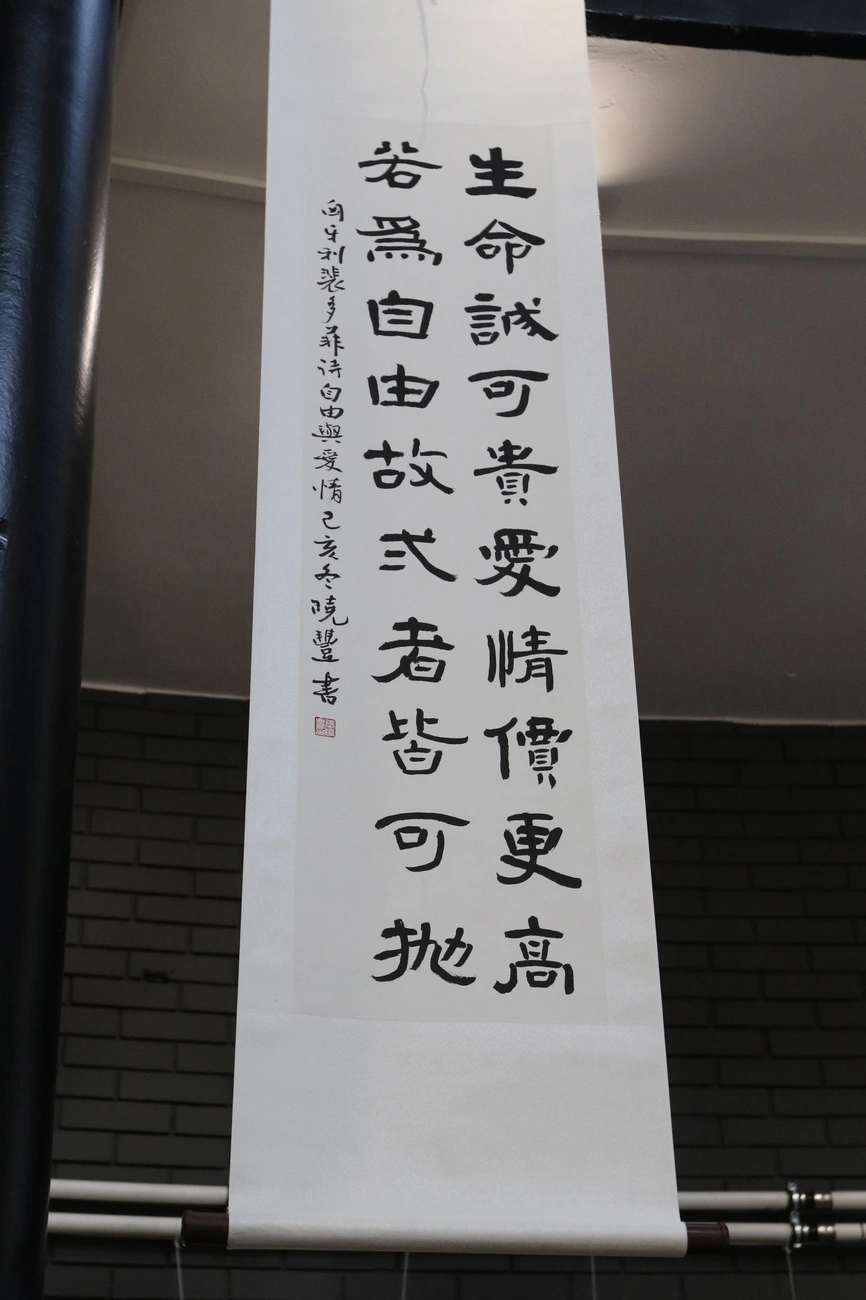 生命誠可貴愛情價更高
若爲自由故弍者皆可抛
匈牙利裴多菲诗自由與爱情己亥冬曉豐书